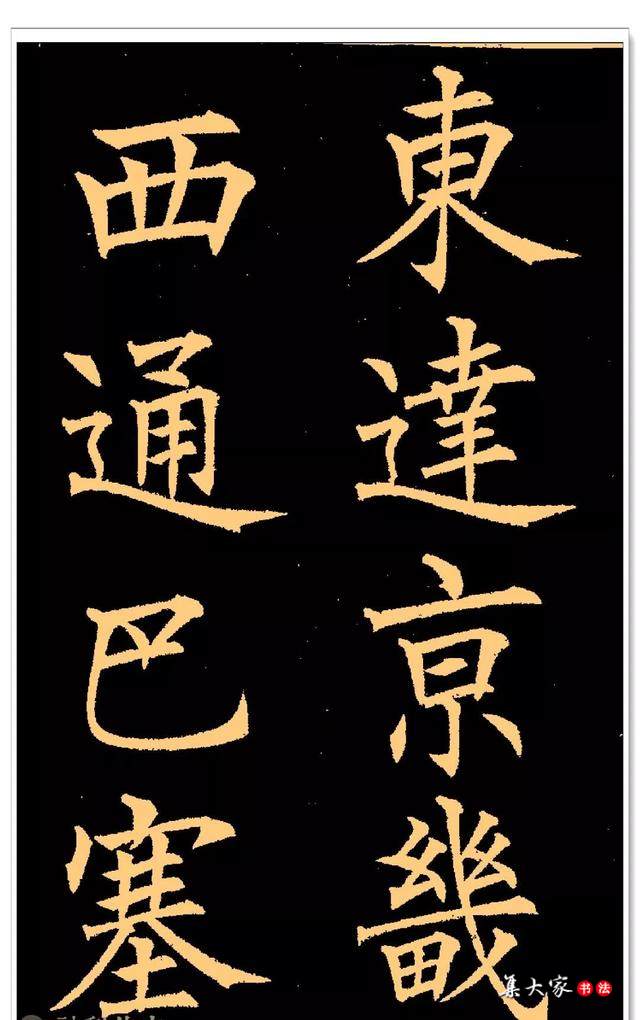 東達京畿
西通巴塞
集大家书法